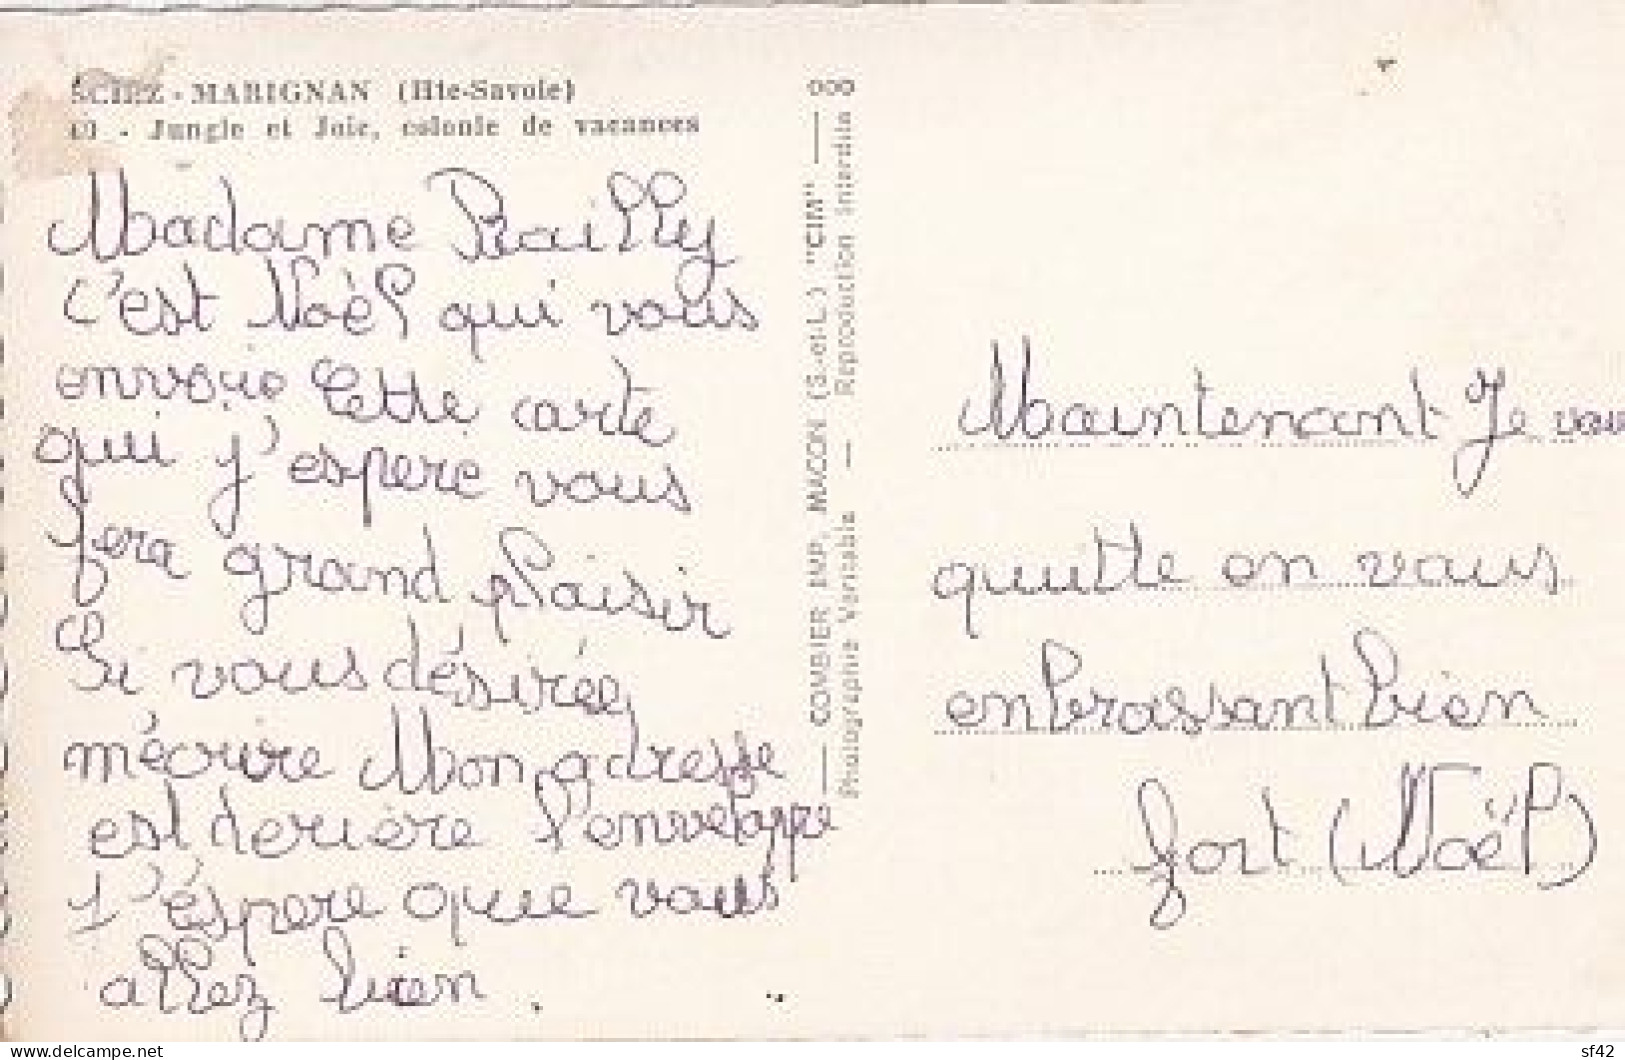 SCIEZ - MARIGNAN (Hte-Savoie)
40 - Jungle et Joie, colonie de vacances
Madame Bailly
c'est Noèl qui vous
envoie cette carte
qui j'espere vous
fera grand plaisir
Si vous désirée
mécrire Mon adresse
est deriere l'enveloppe
J'éspere que vous
allez bien.
000
COMBIER IMP. MACON (S.-et-L.) "CIM"
Photographie Véritable — Reproduction Interdite
Maintenant Je vou
quitte en vous
enbrassant bien
fort (Noël)
sf42